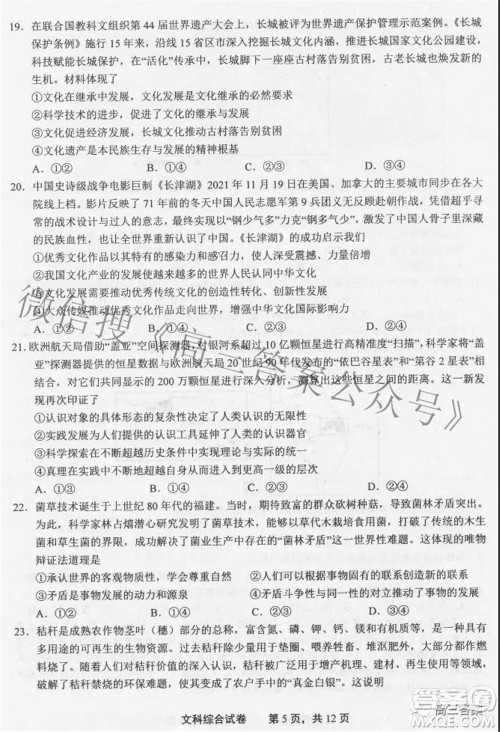 19. 在联合国教科文组织第 44 届世界遗产大会上，长城被评为世界遗产保护管理示范案例。《长城
保护条例》施行 15 年来，沿线 15 省区市深入挖掘长城文化内涵，建设长城国家文化公园，
科技赋能长城长久保护，在“活化”传承中，长城脚下一座座古村落告别贫困，也焕发新的
生机。这表明
①文化在传承中发展，文化遗产的生命力在于创新
②文化与科技、旅游融合，丰富文化发展形式
③文化促进经济发展，长城文化推动古村落告别贫困
④文化遗产是本民族生存与发展的精神纽带
A．①② B．①④ C．②③ D．③④
20. 中国史诗级战争电影巨制《长津湖》2021 年 11 月 19 日在美国、加拿大的主要城市同步在各大
院线上档。影片反映了 71 年前的冬天中国人民志愿军第 9 兵团义无反顾走上朝鲜战场，
凭借超常的战斗意志以“钢少气多”力克“钢多气少”，展示了中国人骨子里深藏
的民族血性，也让世界重新认识了中国。《长津湖》的成功启示我们
①发挥优秀文化作品的价值引领作用，使人深受震撼、力量倍增
②我国文化产业的发展进步，使各国人民认同中华文化
③创新是推动优秀传统文化向现代化发展的重要途径
④大众传媒推动优秀文化作品走向世界，增强中华文化国际影响力
A．①③ B．①④ C．②③ D．②④
21. 欧洲航天局借助“盖亚”空间探测器，对银河系超过 10 亿颗恒星进行高精准度“扫描”，科学家将“盖
亚”探测器提供的恒星数据与欧洲航天局 20 世纪 90 年代发布的“依巴谷星表”和“第谷 2 星表”相
比较，对其中的 200 万颗恒星进行深入分析，测算出这些恒星之间的距离。这一新发
现再次印证了
①认识对象的具体形态的复杂性决定了人类认识的无限性
②科学探测工具的创新延伸了人类的认识器官
③人类总能在不断超越历史条件中实现预期实践目标
④真理在不断地超越自身中走向发展和完善
A．①② B．①③ C．②④ D．③④
22. 菌草技术诞生于上世纪 80 年代的福建。当时，食用菌生产引发的群众砍树种菇，导致菌林矛盾突出。
为此，科学家林占熺潜心研究发明了菌草技术，把草本植物作为栽培食用菌的培养基，打破了木生
菌和草生菌的界限，成功解决了菌业生产中存在的“菌林矛盾”这一世界性难题。这体现的唯物
辩证法道理是
①承认世界的客观物质性，一切从实际出发 ②人们可以根据事物固有的联系创造新的联系
③矛盾是事物发展的源泉和动力 ④矛盾斗争性与同一性相互联结推动了事物的发展
A．①② B．①④ C．②③ D．③④
23. 秸秆是成熟农作物茎叶（穗）部分的总称，富含氮、磷、钾、钙、镁和有机质等，是一种具有
多用途的可再生的生物资源。过去，秸秆主要用于垫圈、喂养牲畜，部分用于堆沤肥，大部分都作
燃料烧了。随着科技的发展，人们不断拓展秸秆利用途径，秸秆逐渐被应用于肥料、饲料、燃料等
多个领域，这一昔日难以处理的农业废弃物变成了农户手中的“真金白银”。这说明
文科综合试卷 第 5 页，共 12 页
微信搜《高三答案公众号》
高三答案